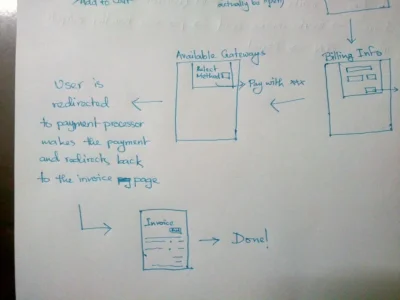 > Add to Cart
actually be open)
Available Gateways
Select
Method
Pay with xxx
Billing Info
User is
redirected
to payment processor
makes the payment
and redirects back
to the invoice page
Invoice
Done!